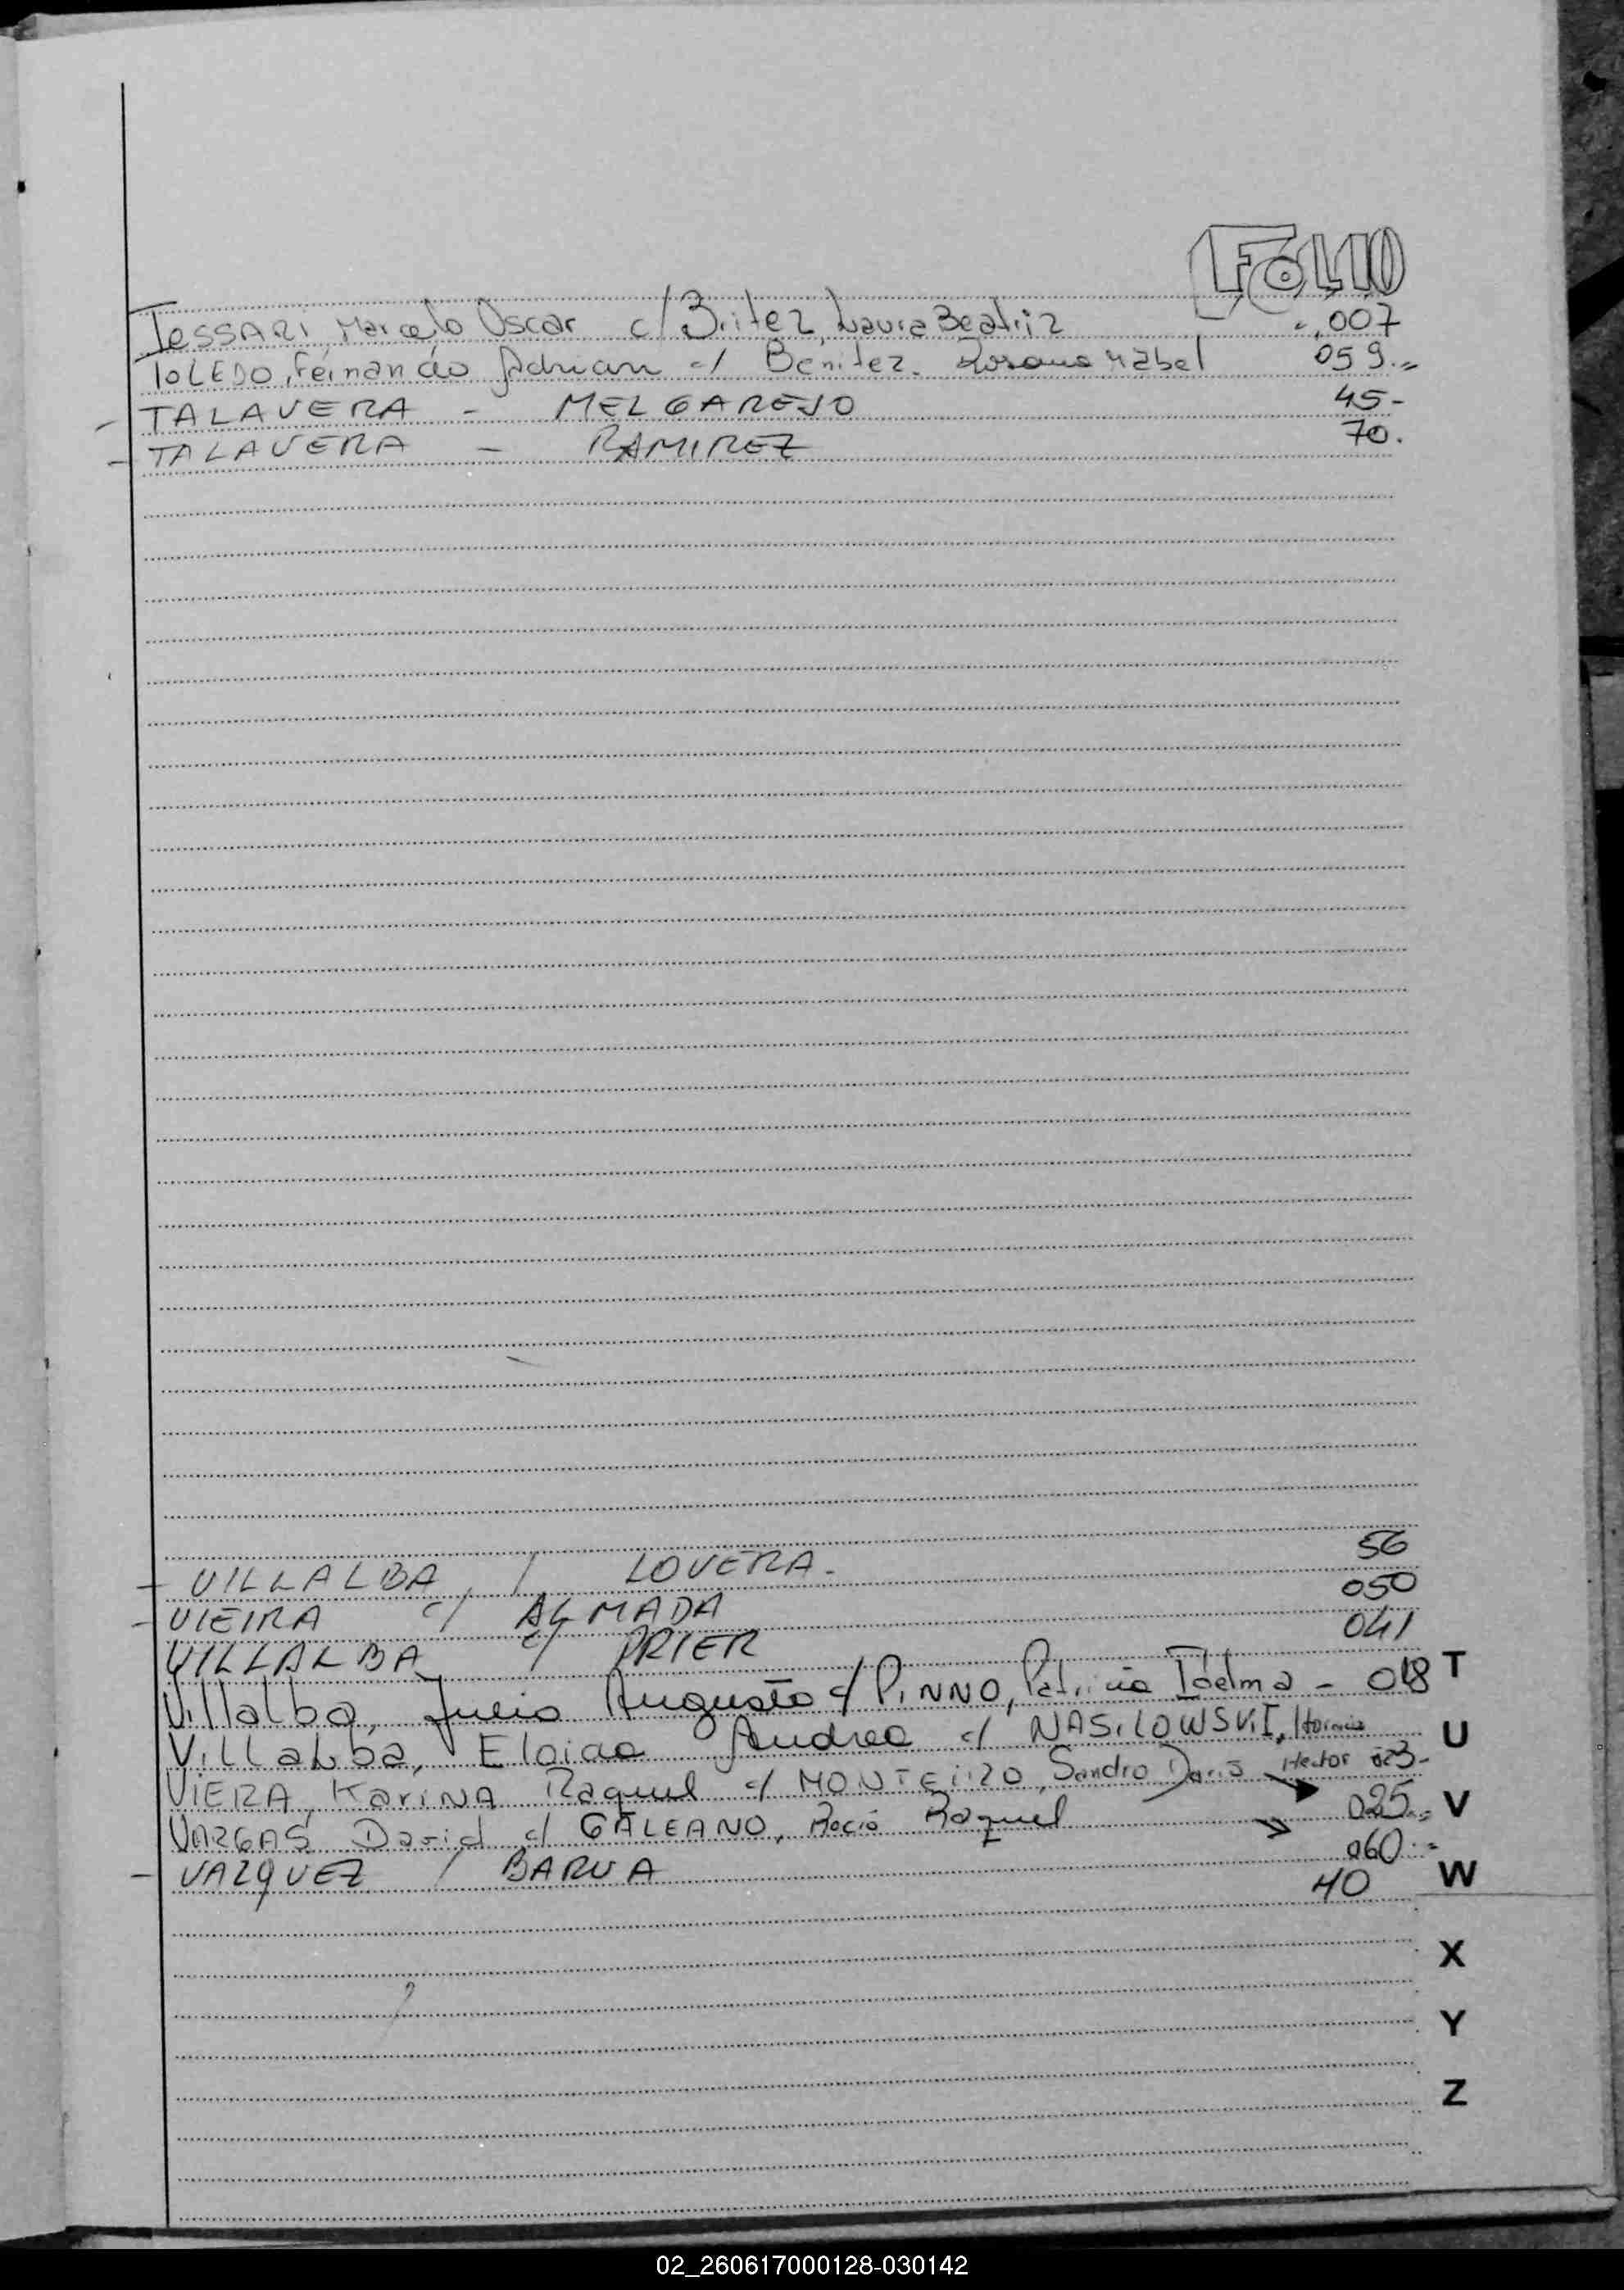 FOLIO
TESSARI, Marcelo Oscar c/ Britez, Laura Beatriz 007
TOLEDO, Fernando Adrian c/ Benitez. Rosana Mabel 059.,,
- TALAVERA - MELGAREJO 45-
- TALAVERA - RAMIREZ 70.
- VILLALBA / LOVERA. 56
- VIEIRA c/ ALMADA 050
VILLALBA c/ PRIER 041
Villalba, Julio Augusto c/ PINNO, Patricia Idelma - 018
Villalba, Eloida Andrea c/ NASILOWSKI, Hector 023-
VIERA, KARINA Raquel c/ MONTEIRO, Sandro Dario 025.,,
VARGAS, David c/ GALEANO, Rocio Raquel 060.-
- VAZQUEZ / BARUA 40
T
U
V
W
X
Y
Z
02_260617000128-030142